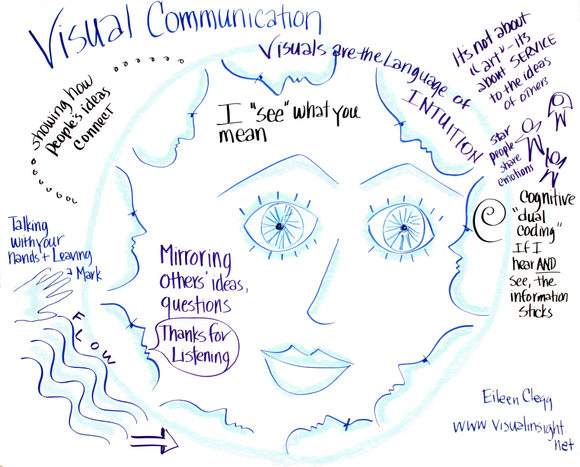 Visual Communication
showing how
people's ideas
connect
Visuals are the Language of
INTUITION
It's not about
"art" - it's
about SERVICE
to the ideas
of others
I "see" what you
mean
star
people
share
emotions
Cognitive
"dual
coding"
If I
hear AND
see, the
information
sticks
Talking
with your
hands + Leaving
a Mark
FLOW
Mirroring
others' ideas,
questions
Thanks for
Listening
Eileen Clegg
www.visualinsight
net